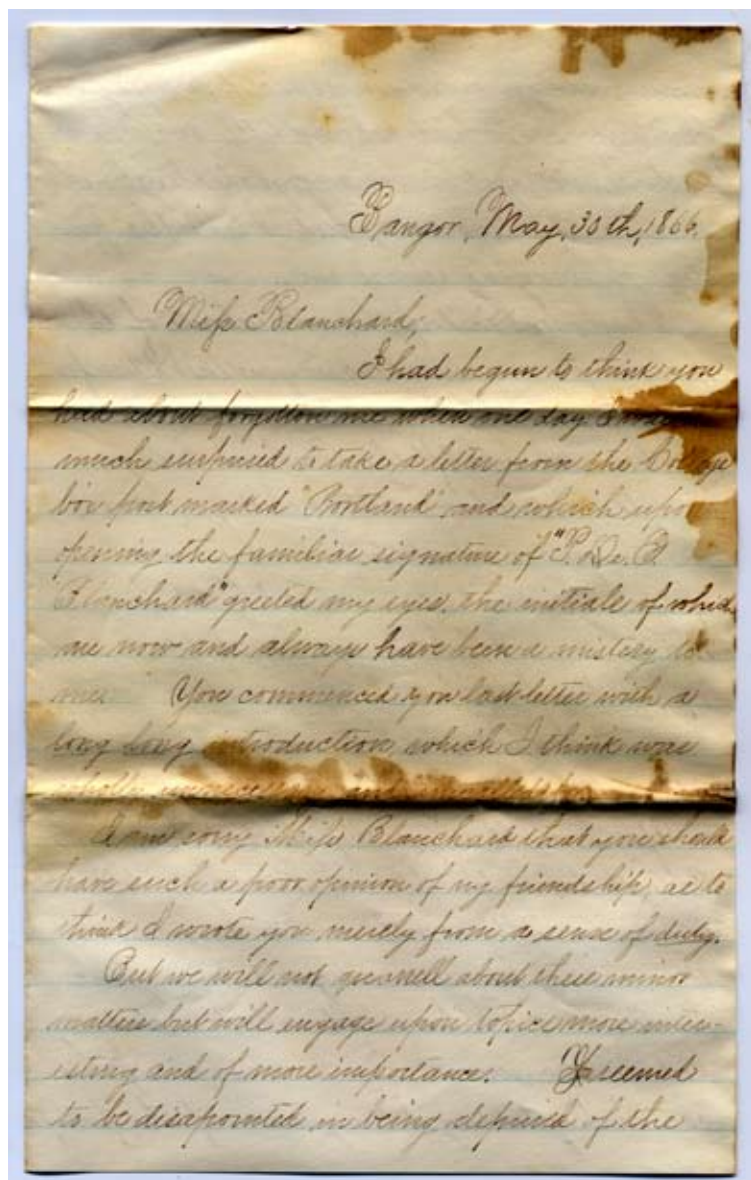 Bangor, May, 30th, 1866.
Miss Blanchard,
I had begun to think you
had about forgotten me when one day I was
much surprised to take a letter from the College
box post marked "Portland" and which upon
opening the familiar signature of "P. De. B.
Blanchard" greeted my eyes, the initials of which
are now and always have been a mistery to
me. You commenced you last letter with a
long long introduction, which I think was
wholly unnecessary and
I am sorry Miss Blanchard that you should
have such a poor opinion of my friendship, as to
think I wrote you merely from a sense of duty.
But we will not quarrell about these minor
matters but will engage upon topics more inter-
esting and of more importance. seemed
to be disapointed in being deprived of the